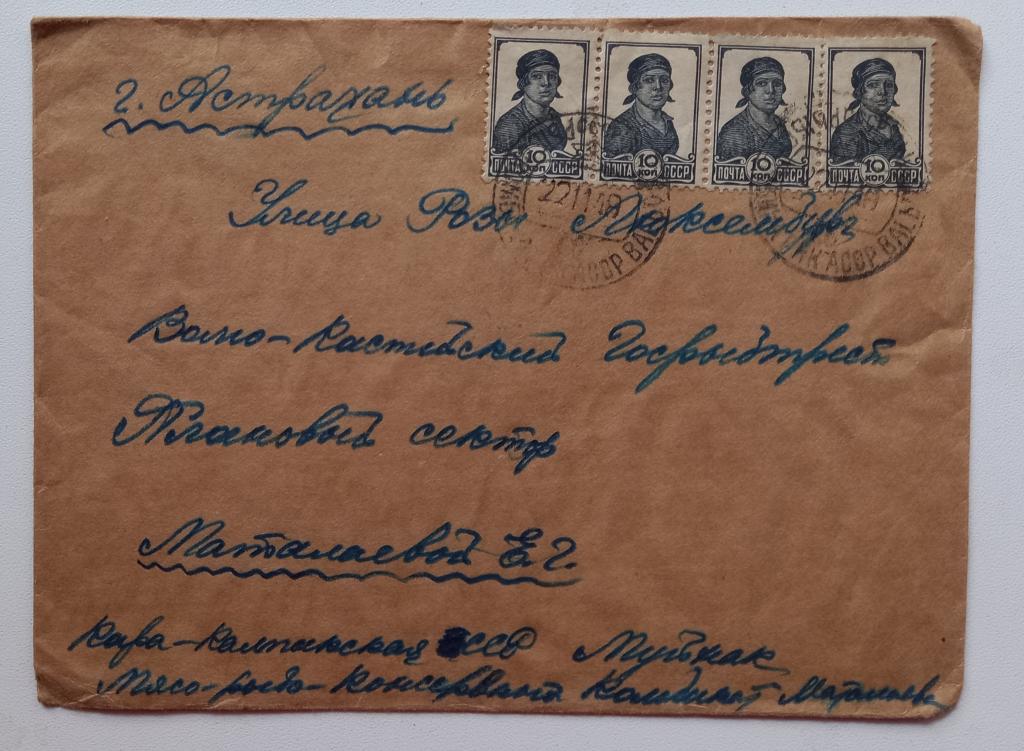 г. Астрахань
ПОЧТА 10 КОП СССР ПОЧТА 10 КОП СССР ПОЧТА 10 КОП СССР ПОЧТА 10 КОП СССР
22 11 49
АССР
АССР
Улица Розы Люксембург
Волго-Каспийский Госрыбтрест
Плановый сектор
Маталаевой Е.Г.
Кара-Калпакская ССР Муйнак
Мясо-рыбо-консервный Комбинат Маталаев